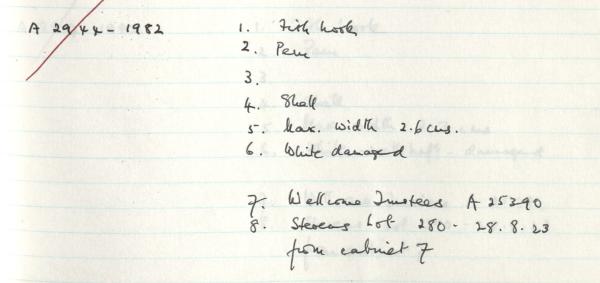 A 2944-1982
1. Fish hook
2. Peru
3.
4. Shell
5. Max. width 2.6 cms.
6. White damaged
7. Wellcome Trustees A 25390
8. Stevens Lot 280 - 28.8.23
from cabinet 7